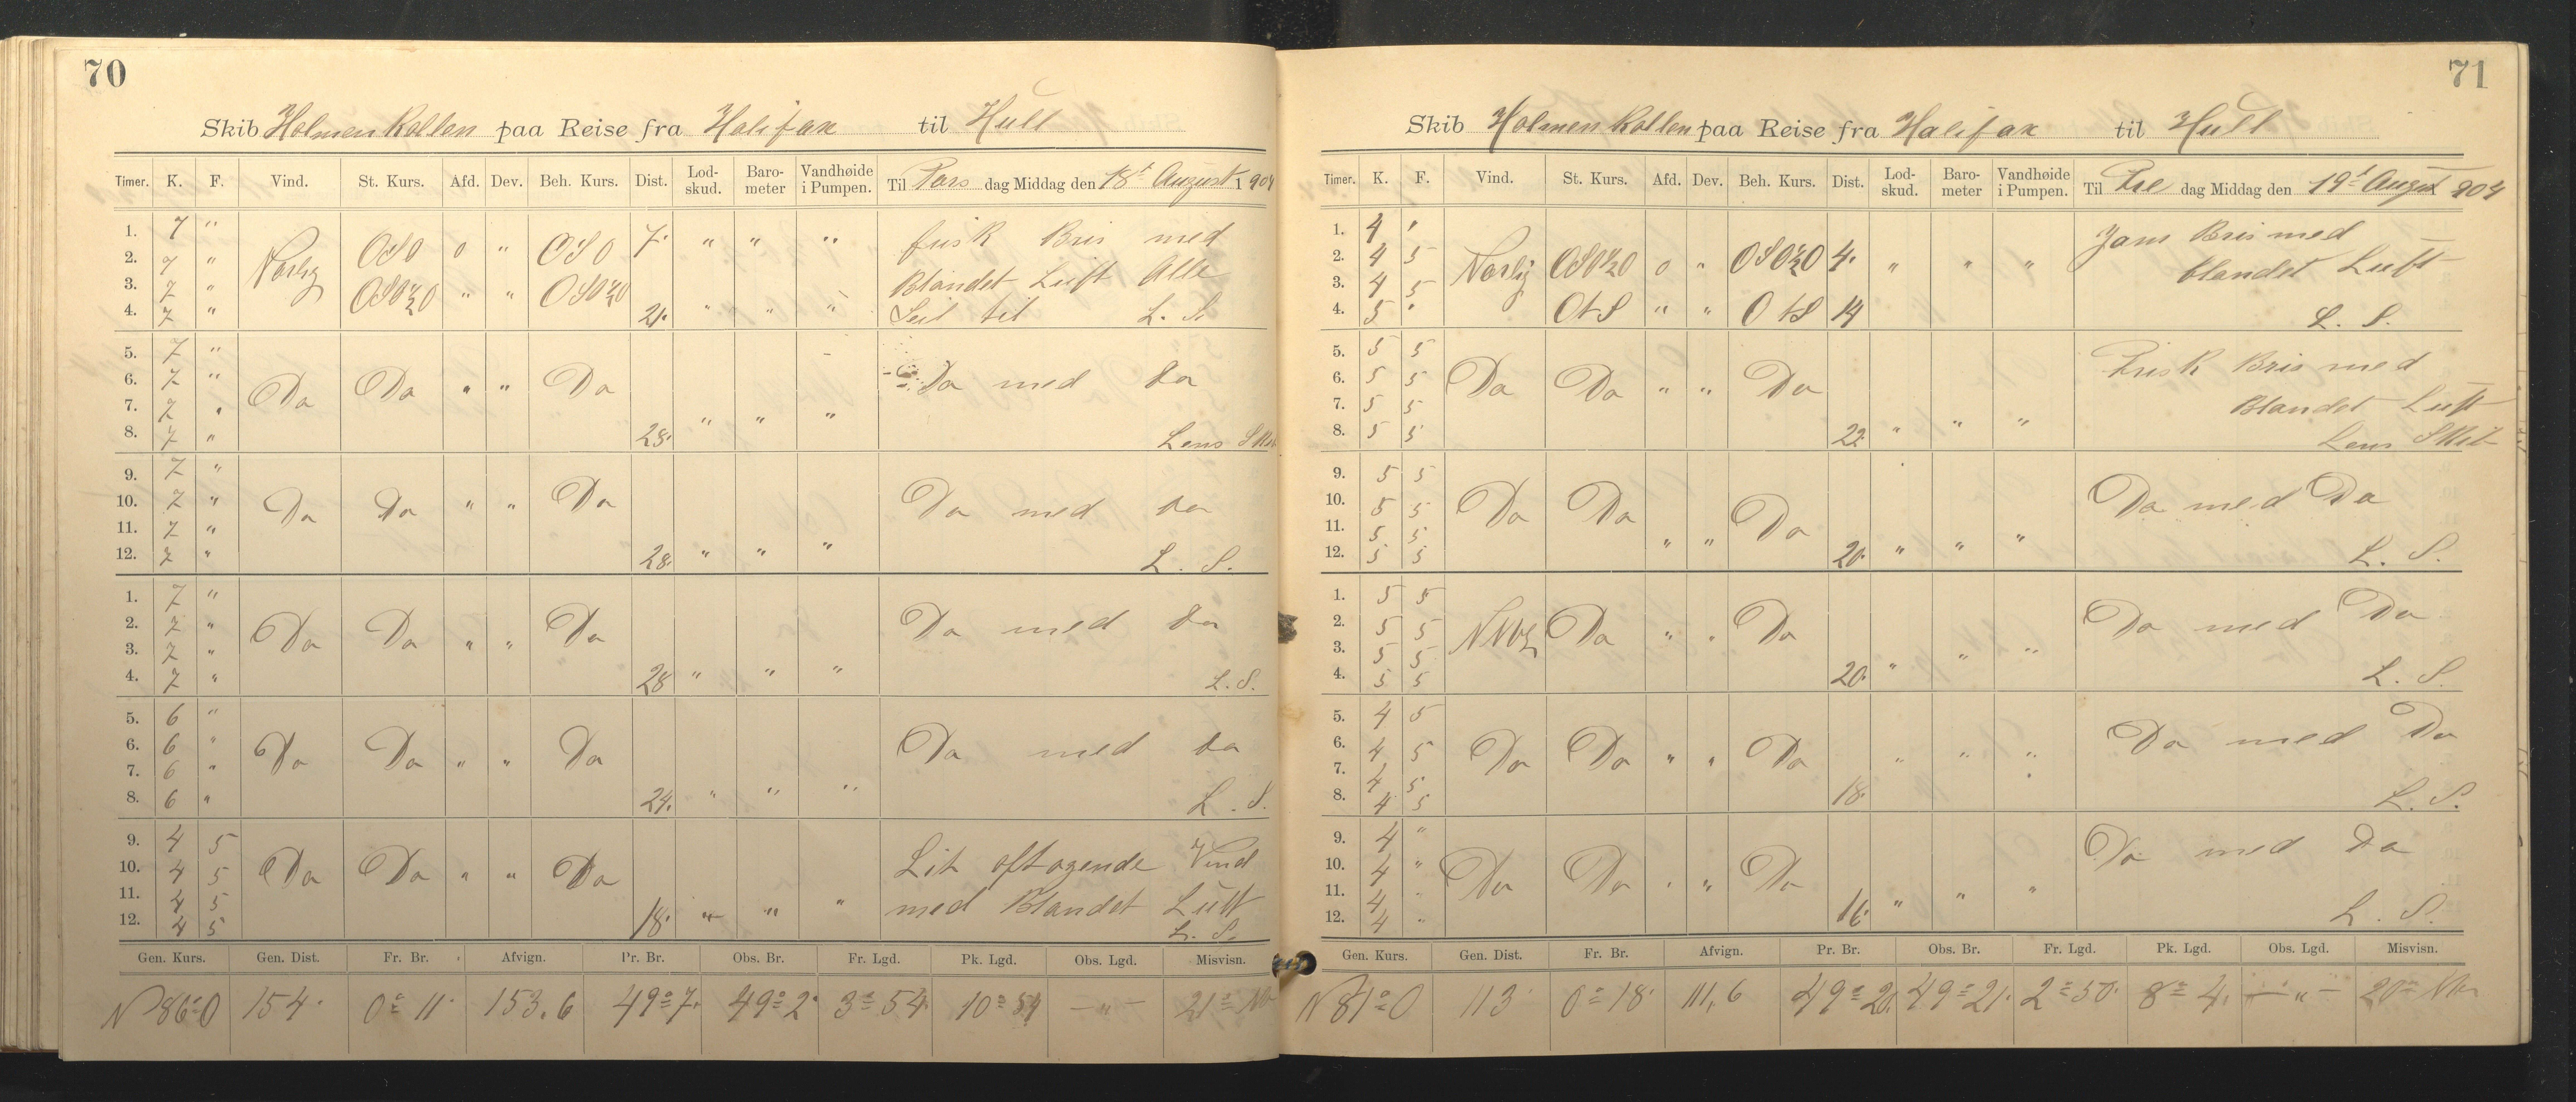 70
Skib Holmenkollen paa Reise fra Halifax til Hull
Timer. K. F. Vind. St. Kurs. Afd. Dev. Beh. Kurs. Dist. Lod-skud. Baro-meter Vandhøide i Pumpen. Til Tors dag Middag den 18de August 1904
1. 7 " Nordlig OSO 0 " OSO 7. " " " frisk Bris med
2. 7 "
3. 7 " OSO½O " " OSO½O Blandet Luft Alle
4. 7 " 21. " " " Seil til L. S.
5. 7 "
6. 7 " Do Do " " Do Do med do
7. 7 "
8. 7 " 28. " " " Lens Skib
9. 7 "
10. 7 " Do Do " " Do Do med do
11. 7 "
12. 7 " 28. " " " L. S.
1. 7 "
2. 7 " Do Do " " Do Do med do
3. 7 "
4. 7 " 28 " " " L. S.
5. 6 "
6. 6 " Do Do " " Do Do med do
7. 6 "
8. 6 " 24. " " " L. S.
9. 4 5 Lit aftagende Vind
10. 4 5 Do Do " " Do
11. 4 5 med Blandet Luft
12. 4 5 18. " " " L. S.
Gen. Kurs. Gen. Dist. Fr. Br. Afvign. Pr. Br. Obs. Br. Fr. Lgd. Pk. Lgd. Obs. Lgd. Misvisn.
N 86° O 154. 0° 11' 153,6 49° 7. 49° 2' 3° 54. 10° 54 — " — 21°
71
Skib Holmenkollen paa Reise fra Halifax til Hull
Timer. K. F. Vind. St. Kurs. Afd. Dev. Beh. Kurs. Dist. Lod-skud. Baro-meter Vandhøide i Pumpen. Til Fre dag Middag den 19de August 1904
1. 4 " Javn Bris med
2. 4 5 Nordlig OSO½O 0 " OSO½O 4. " " " blandet Luft
3. 4 5
4. 5 " OtS " " OtS 14 L. S.
5. 5 5 Frisk Bris med
6. 5 5 Do Do " " Do
7. 5 5 Blandet Luft
8. 5 5 22. " " " Lens Skib
9. 5 5
10. 5 5 Do Do Do Do med Do
11. 5 5
12. 5 5 " " 20. " " " L. S.
1. 5 5
2. 5 5 Do " " Do Do med Do
3. 5 5
4. 5 5 20. " " " L. S.
5. 4 5
6. 4 5 Do Do " " Do " " " Do med Do
7. 4 5
8. 4 5 18. L. S.
9. 4 " Do med Do
10. 4 " Do Do " " Do
11. 4 "
12. 4 " 16. " " " L. S.
Gen. Kurs. Gen. Dist. Fr. Br. Afvign. Pr. Br. Obs. Br. Fr. Lgd. Pk. Lgd. Obs. Lgd. Misvisn.
N 81° O 113 0° 18' 111,6 49° 20. 49° 21. 2° 50. 8° 4. — " — 20°